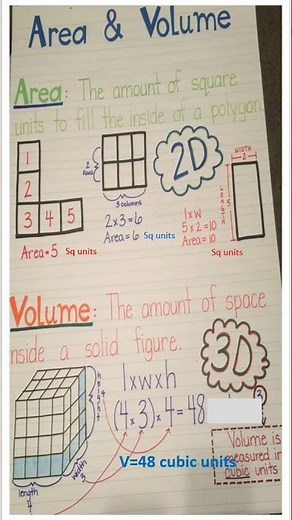 Area & Volume
Area: The amount of square
units to fill the inside of a polygon
1
2
3 4 5
Area=5 Sq units
2
Rows
3 columns
2x3=6
Area=6 Sq units
2D
WIDTH
2
LENGTH
5
lxw
5x2=10
Area=10
Sq units
Volume: The amount of space
inside a solid figure.
3D
lxwxh
(4x3)x4=48
3
height
4
width
3
length
4
Volume is
measured in
cubic units
V=48 cubic units